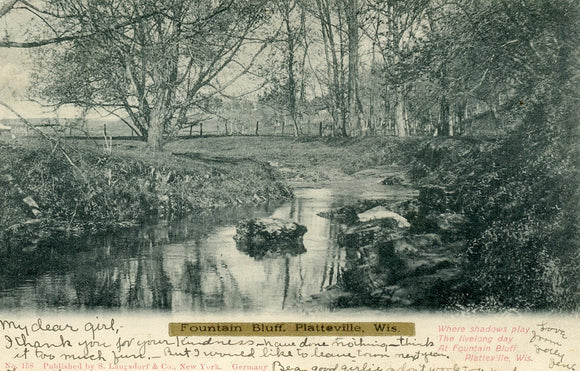 Fountain Bluff, Platteville, Wis.
My dear girl,-
I thank you for your kindness - have done nothing - think
it too much fun. - But I would like to leave town new year
No. 158 Published by S. Langsdorf & Co., New York. Germany
Be a good girlie
Where shadows play
The livelong day
At Fountain Bluff
Platteville, Wis.
Love
from